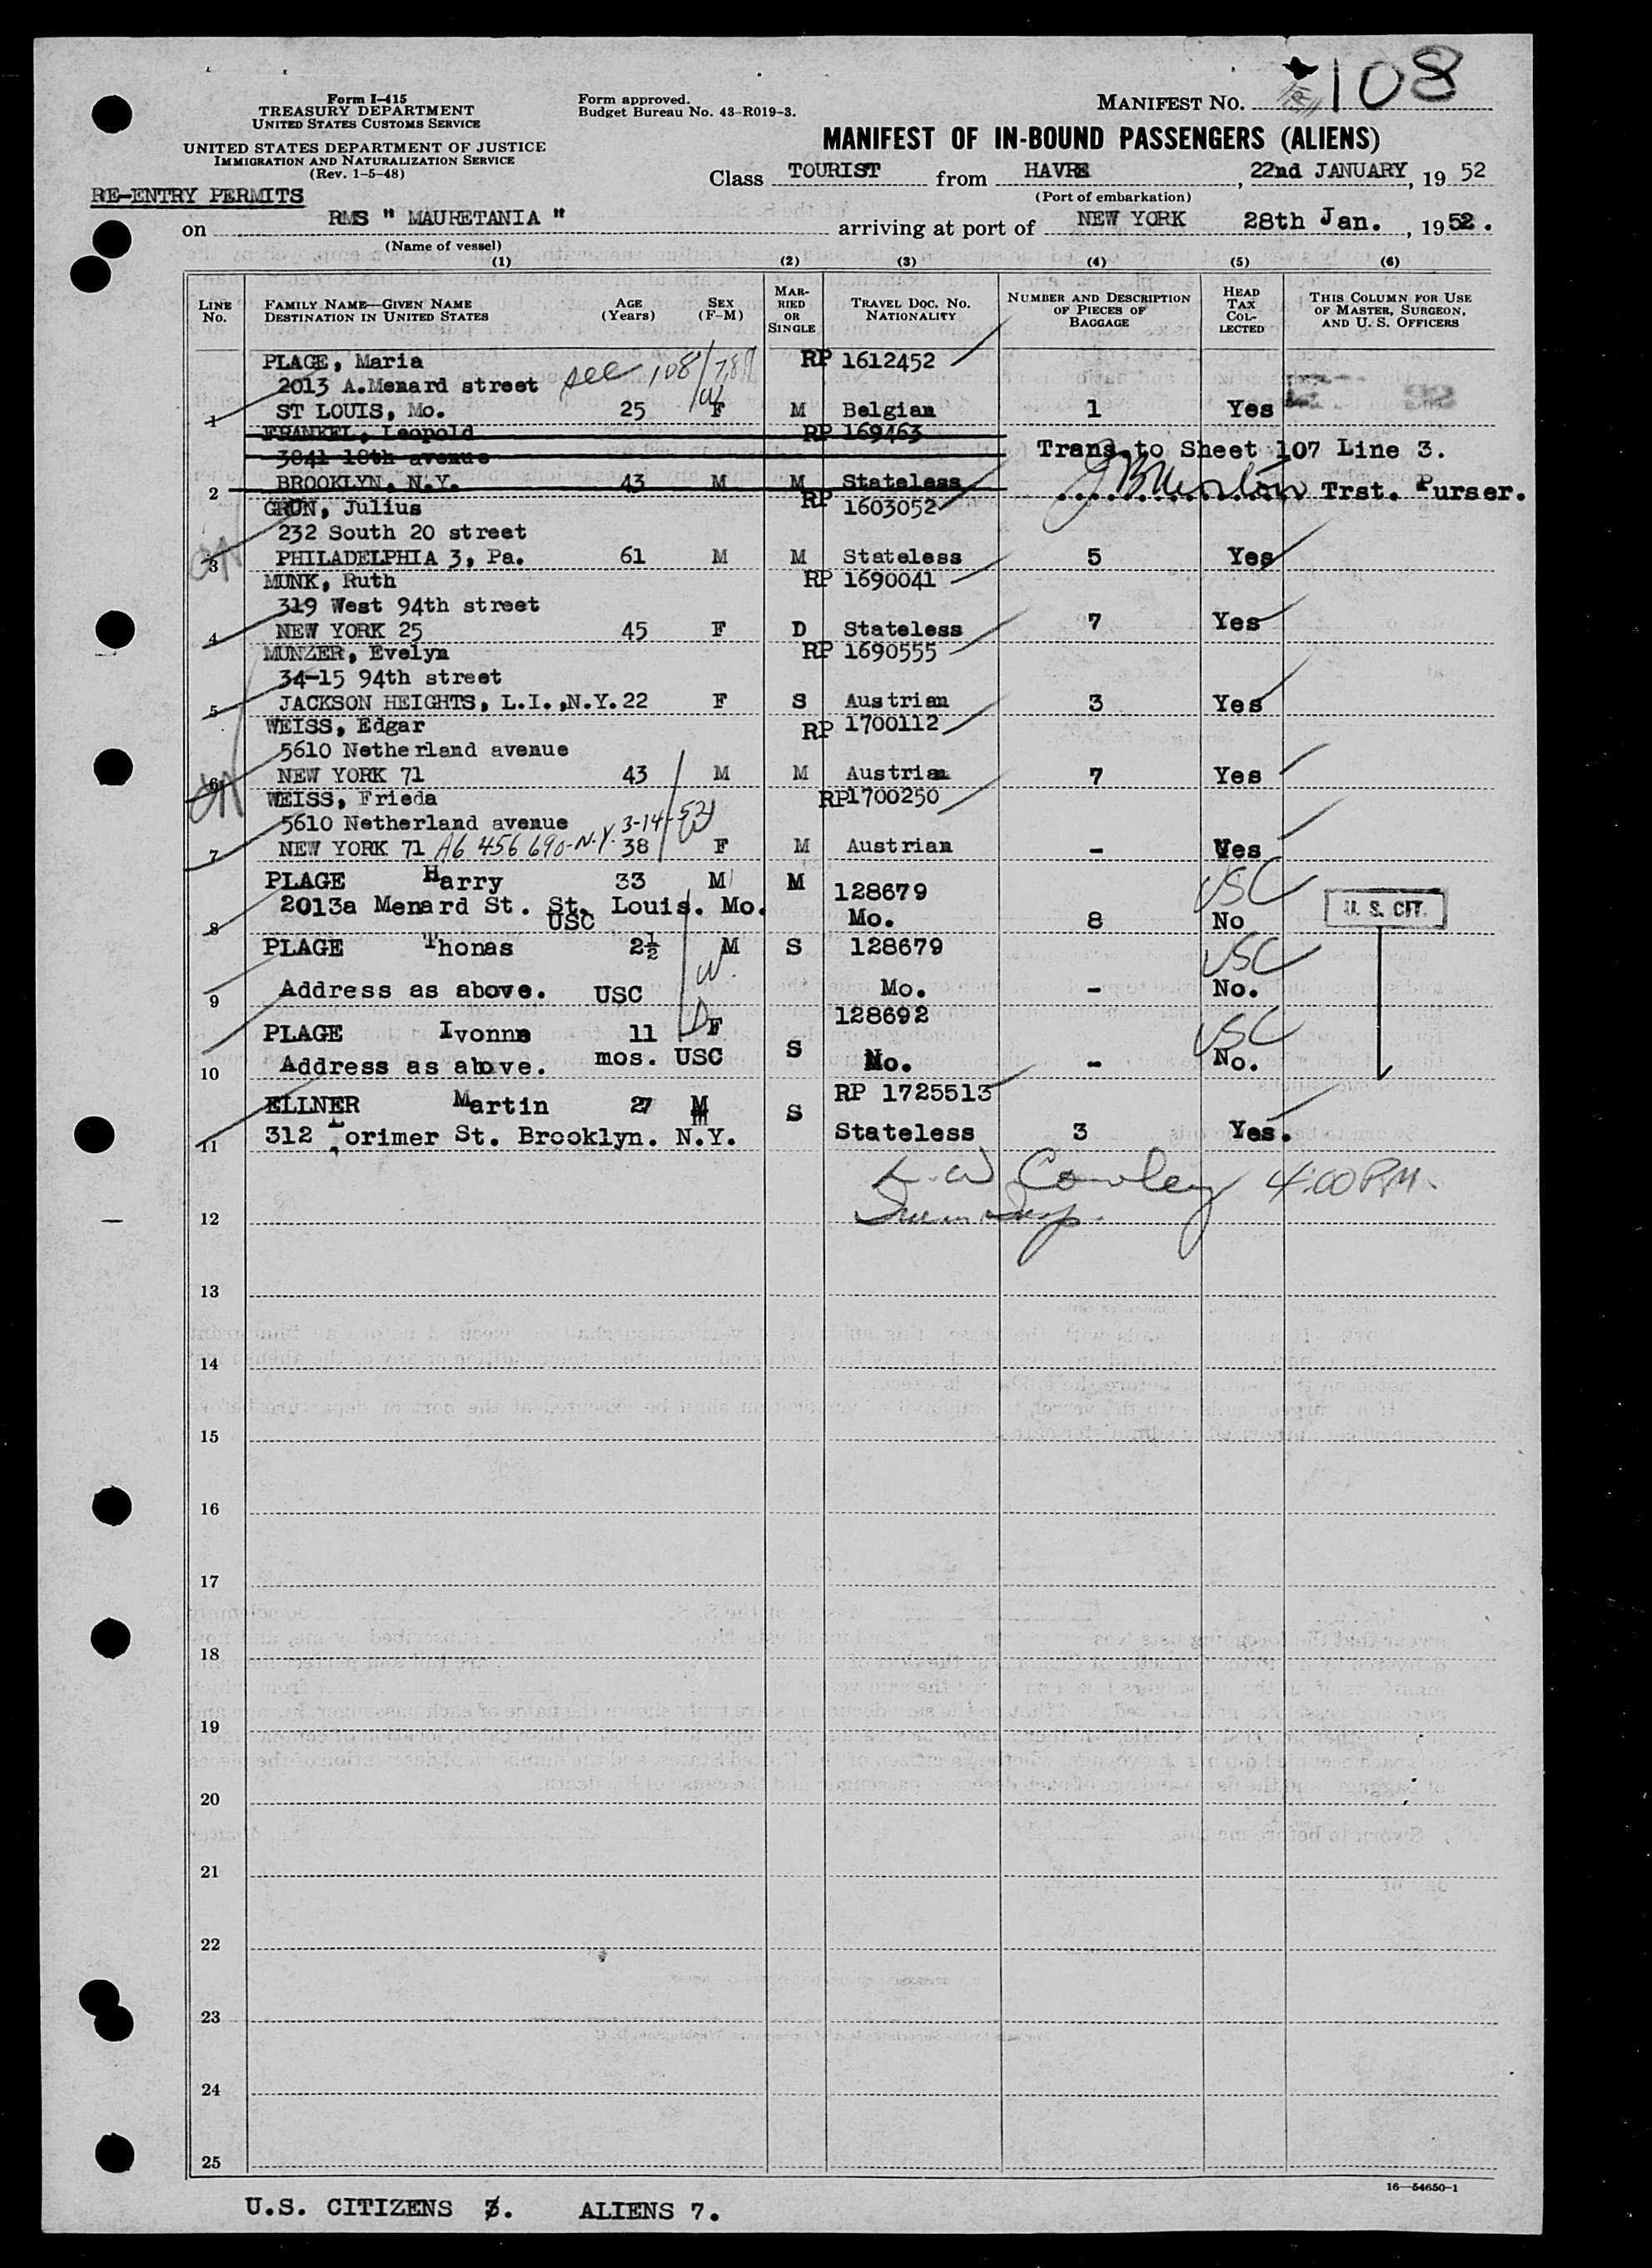 108
Form I-415
TREASURY DEPARTMENT
UNITED STATES CUSTOMS SERVICE
UNITED STATES DEPARTMENT OF JUSTICE
IMMIGRATION AND NATURALIZATION SERVICE
(Rev. 1-5-48)
Form approved.
Budget Bureau No. 43-R019-3.
MANIFEST NO.
MANIFEST OF IN-BOUND PASSENGERS (ALIENS)
Class TOURIST from HAVRE, 22nd JANUARY, 19 52
(Port of embarkation)
RE-ENTRY PERMITS
on RMS " MAURETANIA " arriving at port of NEW YORK 28th Jan., 1952.
(Name of vessel)
(1) (2) (3) (4) (5) (6)
LINE NO. FAMILY NAME—GIVEN NAME DESTINATION IN UNITED STATES AGE (Years) SEX (F-M) MARRIED OR SINGLE TRAVEL DOC. NO. NATIONALITY NUMBER AND DESCRIPTION OF PIECES OF BAGGAGE HEAD TAX COLLECTED THIS COLUMN FOR USE OF MASTER, SURGEON, AND U. S. OFFICERS
PLAGE, Maria RP 1612452
2013 A.Menard street see 108/7,8,9
1 ST LOUIS, Mo. 25 F M Belgian 1 Yes
FRANKEL, Leopold RP 169463
3841 18th avenue Trans. to Sheet 107 Line 3.
2 BROOKLYN, N.Y. 43 M M Stateless Trst. Purser.
GRUN, Julius RP 1603052
232 South 20 street
3 PHILADELPHIA 3, Pa. 61 M M Stateless 5 Yes
MUNK, Ruth RP 1690041
319 West 94th street
4 NEW YORK 25 45 F D Stateless 7 Yes
MUNZER, Evelyn RP 1690555
34-15 94th street
5 JACKSON HEIGHTS, L.I.,N.Y. 22 F S Austrian 3 Yes
WEISS, Edgar RP 1700112
5610 Netherland avenue
6 NEW YORK 71 43 M M Austrian 7 Yes
WEISS, Frieda RP1700250
5610 Netherland avenue 3-14-52
7 NEW YORK 71 A6 456 690-N.Y. 38 F M Austrian - Yes
PLAGE Harry 33 M M 128679 USC
2013a Menard St. St. Louis. Mo.
8 USC Mo. 8 No U. S. CIT.
PLAGE Thonas 2½ M S 128679 USC
9 Address as above. USC Mo. - No.
PLAGE Ivonne 11 F 128692 USC
10 Address as above. mos. USC S Mo. - No.
ELLNER Martin 27 M S RP 1725513
11 312 Lorimer St. Brooklyn. N.Y. Stateless 3 Yes.
Cowley 4:00 P.M.
12
13
14
15
16
17
18
19
20
21
22
23
24
25
16—54650-1
U.S. CITIZENS 3. ALIENS 7.